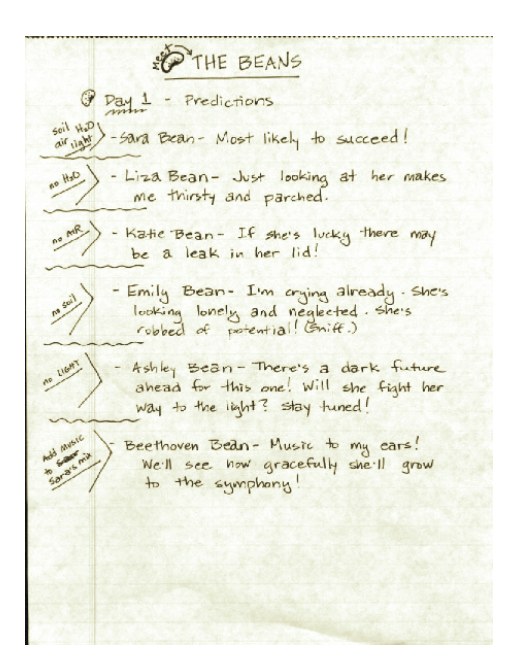 Meet THE BEANS
Day 1 - Predictions
soil H₂O
air light
- Sara Bean - Most likely to succeed!
no H₂O
- Liza Bean - Just looking at her makes
me thirsty and parched.
no AIR
- Katie Bean - If she's lucky there may
be a leak in her lid!
no soil
- Emily Bean - I'm crying already. She's
looking lonely and neglected. She's
robbed of potential! (Sniff.)
no LIGHT
- Ashley Bean - There's a dark future
ahead for this one! Will she fight her
way to the light? Stay tuned!
Add music
to
Sara's mix
- Beethoven Bean - Music to my ears!
We'll see how gracefully she'll grow
to the symphony!